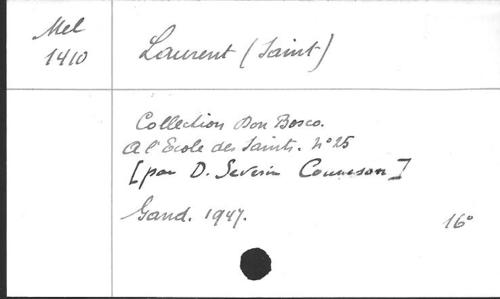 Mel
1410
Laurent (Saint)
Collection Don Bosco.
A l'Ecole des Saints. N° 25
[par D. Severin Couneson]
Gand. 1947.
16°